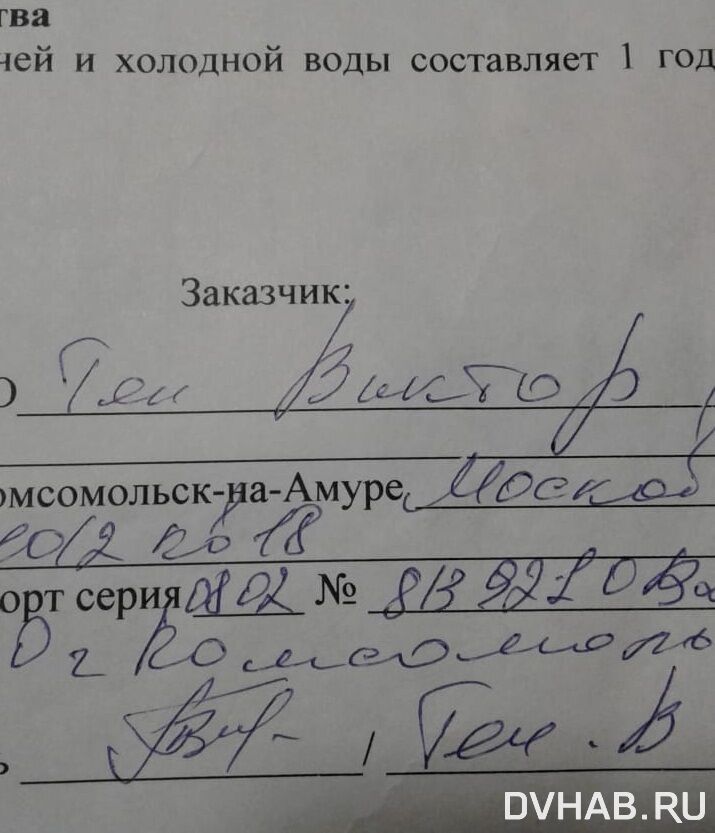 тва
чей и холодной воды составляет 1 год
Заказчик:
О Тен Виктор
омсомольск-на-Амуре, Москов
кв 18
орт серия 0802 № 813921 ОВД
г Комсомоль
ь / Тен . В
DVHAB.RU